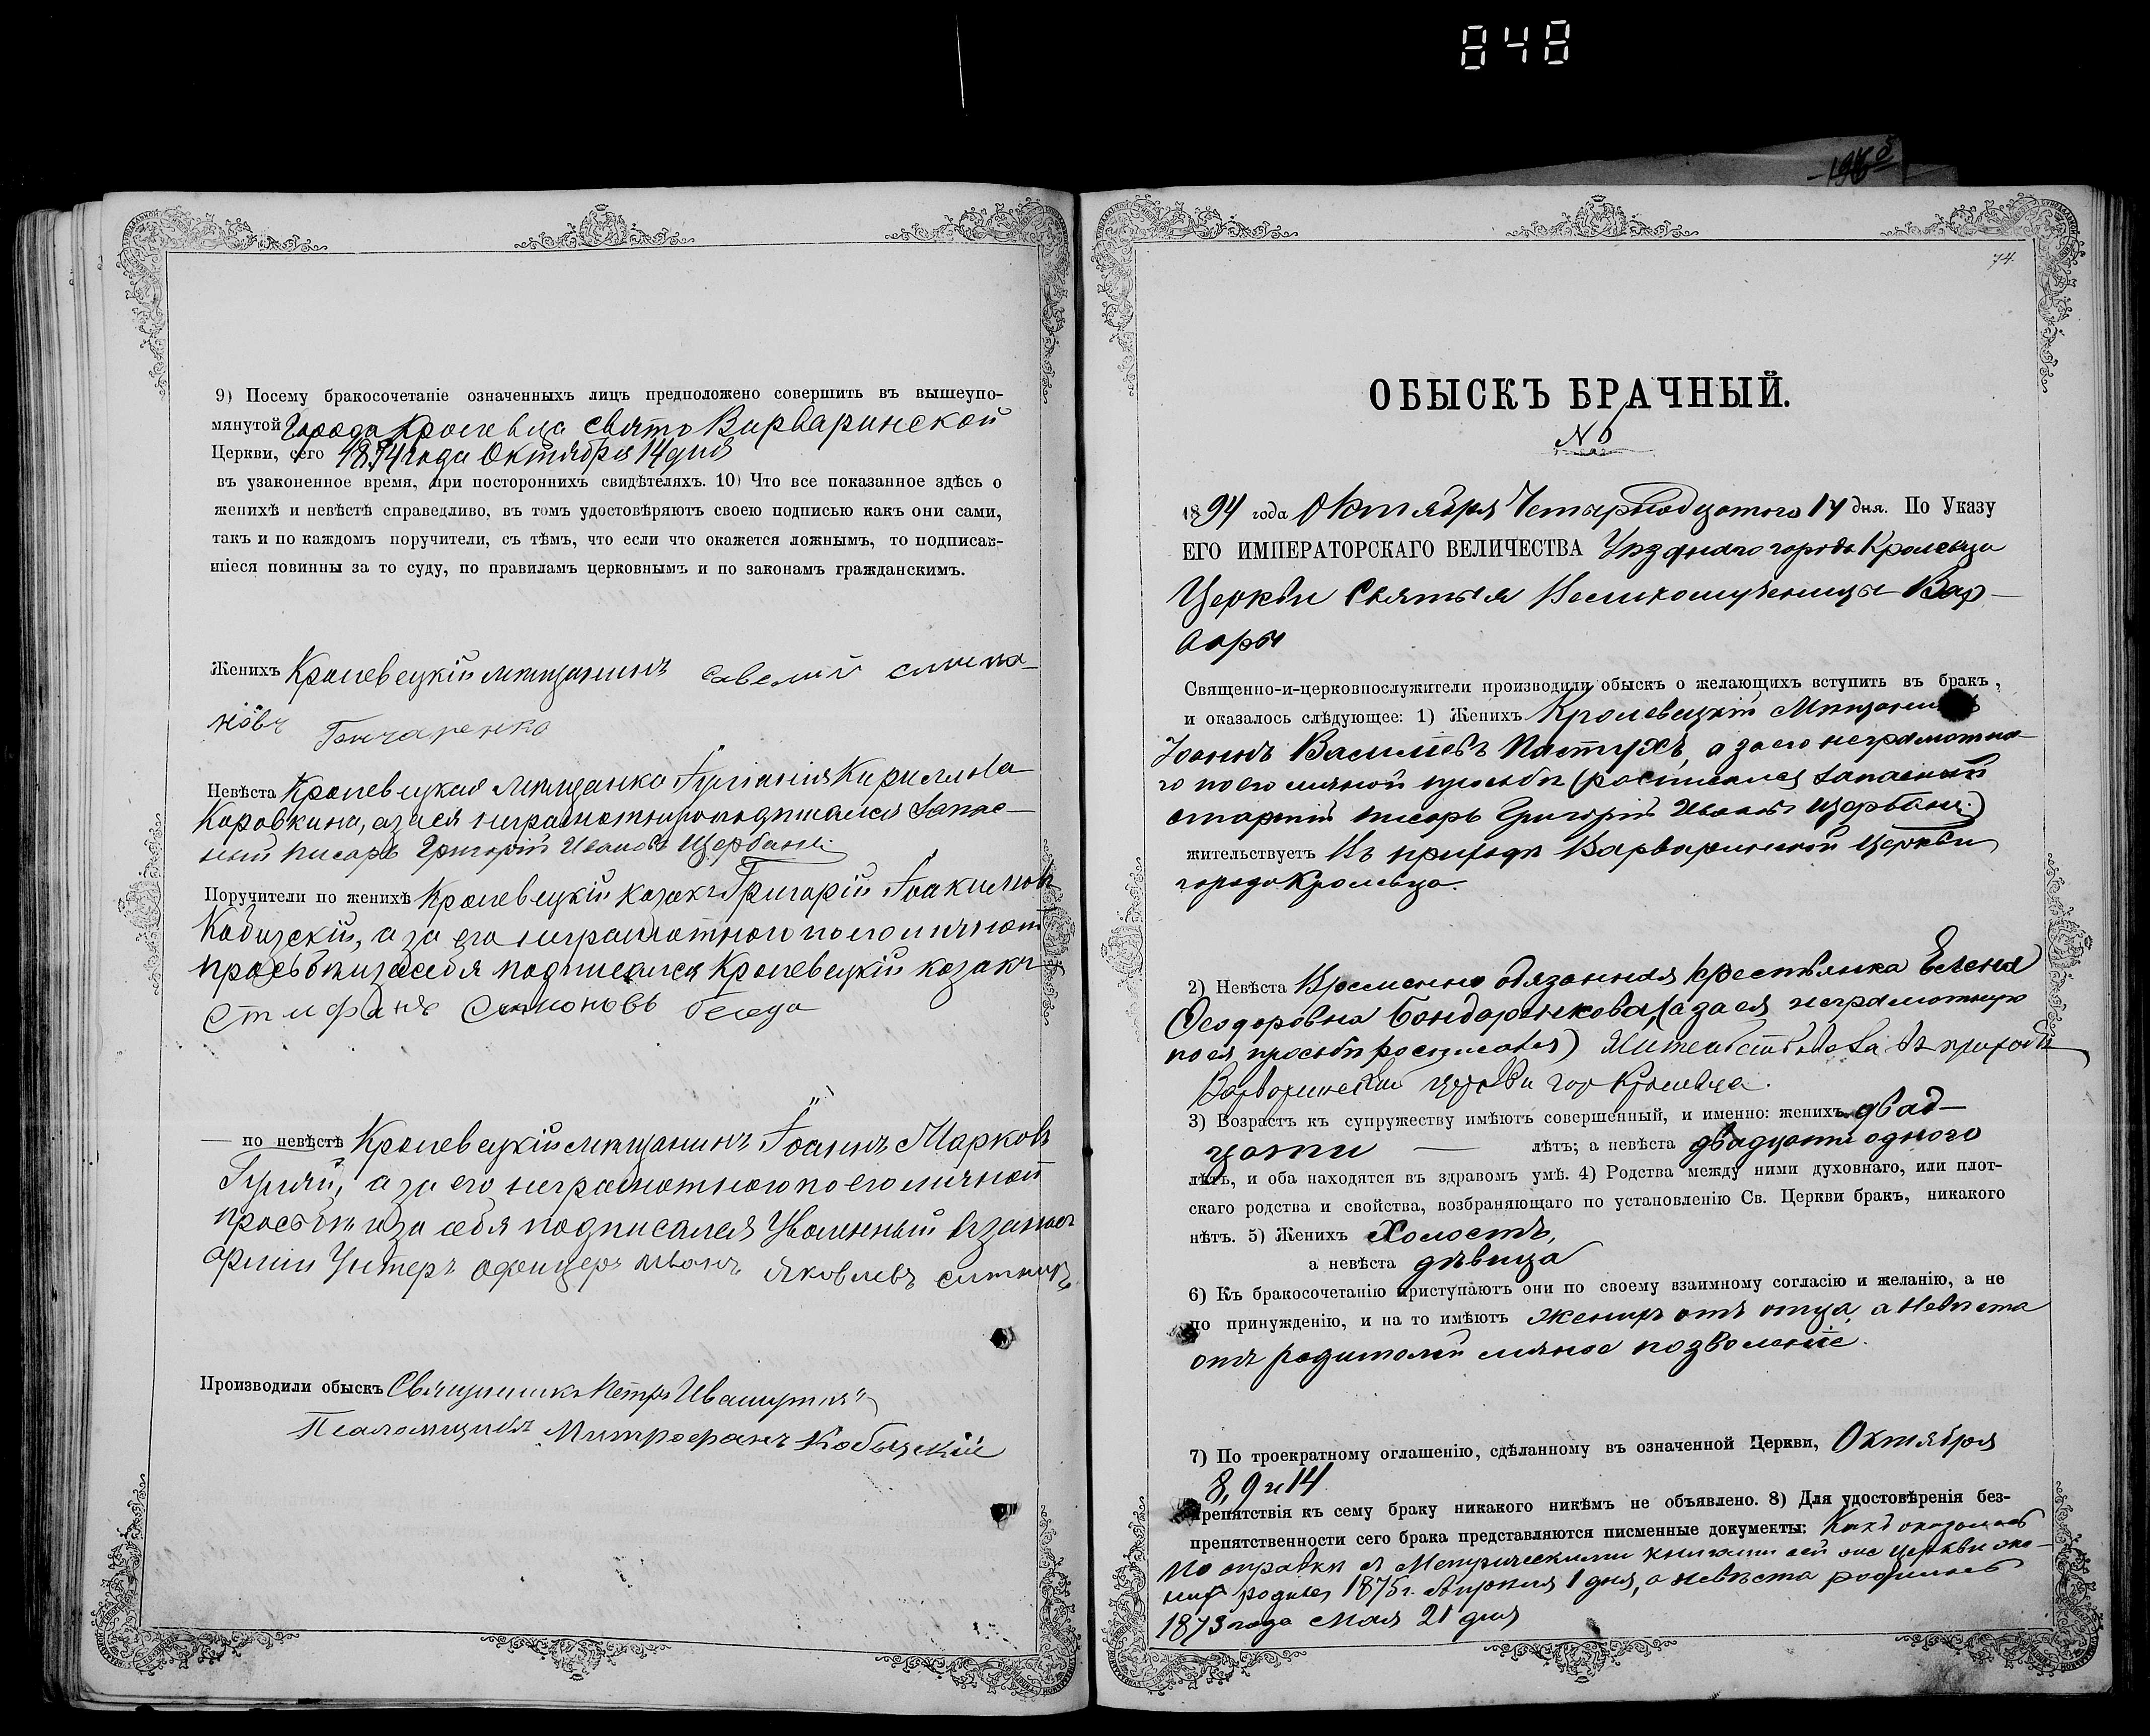 848
9) Посему бракосочетаніе означенныхъ лицъ предположено совершить въ вышеупо-
мянутой Города Кролевца Свято Варваринской
Церкви, сего 1894 года Октября 14 дня
въ узаконенное время, при постороннихъ свидѣтеляхъ. 10) Что все показанное здѣсь о
женихѣ и невѣстѣ справедливо, въ томъ удостовѣряютъ своею подписью какъ они сами,
такъ и по каждомъ поручители, съ тѣмъ, что если что окажется ложнымъ, то подписав-
шіеся повинны за то суду, по правиламъ церковнымъ и по законамъ гражданскимъ.
Женихъ Кролевецкій мѣщанинъ Савелий
Гончаренко
Невѣста Кролевецкая мѣщанка Іуліанія Кириллова
Коровкина, а за ея неграмотную подписался Запас-
ный писарь Григорій Ивановъ Щербань
Поручители по женихѣ Кролевецкій козакъ Григорій Іоакимовъ
Кобизскій, а за его неграмотного по его личной
просьбѣ и за себя подписался Кролевецкій козакъ
Стифанъ Симоновъ беседа
по невѣстѣ Кролевецкій мѣщанинъ Іоаннъ Марковъ
а за его неграмотного по его личной
просьбѣ и за себя подписался Уволенный въ запасъ
Арміи Унтеръ офицеръ Иванъ Яковлевъ ситникъ
Производили обыскъ Священникъ Петръ Ивашутичъ
Псаломщикъ Митрофанъ Кобызскій
74.
ОБЫСКЪ БРАЧНЫЙ.
№
1894 года Октября Четырнадцатого 14 дня. По Указу
ЕГО ИМПЕРАТОРСКАГО ВЕЛИЧЕСТВА Уѣзднаго города Кролевца
Церкви Святыя Великомученицы Вар-
вары
Священно-и-церковнослужители производили обыскъ о желающихъ вступить въ бракъ,
и оказалось слѣдующее: 1) Женихъ Кролевецкій Мѣщанинъ
Іоаннъ Васильевъ Пастухъ, а за его неграмотна-
го по его личной просьбѣ (росписался Запасный
старшій писарь Григорій Ивановъ Щербань.)
жительствуетъ Въ приходѣ Варваринской Церкви
города Кролевца.
2) Невѣста Временно обязанная крестьянка Елена
Феодоровна Бондаренкова, (а за ея неграмотную
по ея просьбѣ росписався) Жительствовала въ приходѣ
Варваринской Церкви гор Кролевца.
3) Возрастъ къ супружеству имѣютъ совершенный, и именно: женихъ двад-
цати лѣтъ; а невѣста двадцати одного
лѣтъ, и оба находятся въ здравомъ умѣ. 4) Родства между ними духовнаго, или плот-
скаго родства и свойства, возбраняющаго по установленію Св. Церкви бракъ, никакого
нѣтъ. 5) Женихъ Холостъ,
а невѣста дѣвица
6) Къ бракосочетанію приступаютъ они по своему взаимному согласію и желанію, а не
по принужденію, и на то имѣютъ женихъ отъ отца, а Невѣста
отъ родителей личное позволеніе.
7) По троекратному оглашенію, сдѣланному въ означенной Церкви, Октября
8, 9 и 14
препятствія къ сему браку никакого никѣмъ не объявлено. 8) Для удостовѣренія без-
препятственности сего брака представляются писменные документы: Какъ оказалось
По справкѣ съ Метрическими книгами сей же церкви же-
нихъ родился 1875 г. Апрѣля 1 дня, а невѣста родилась
1873 года Мая 21 дня